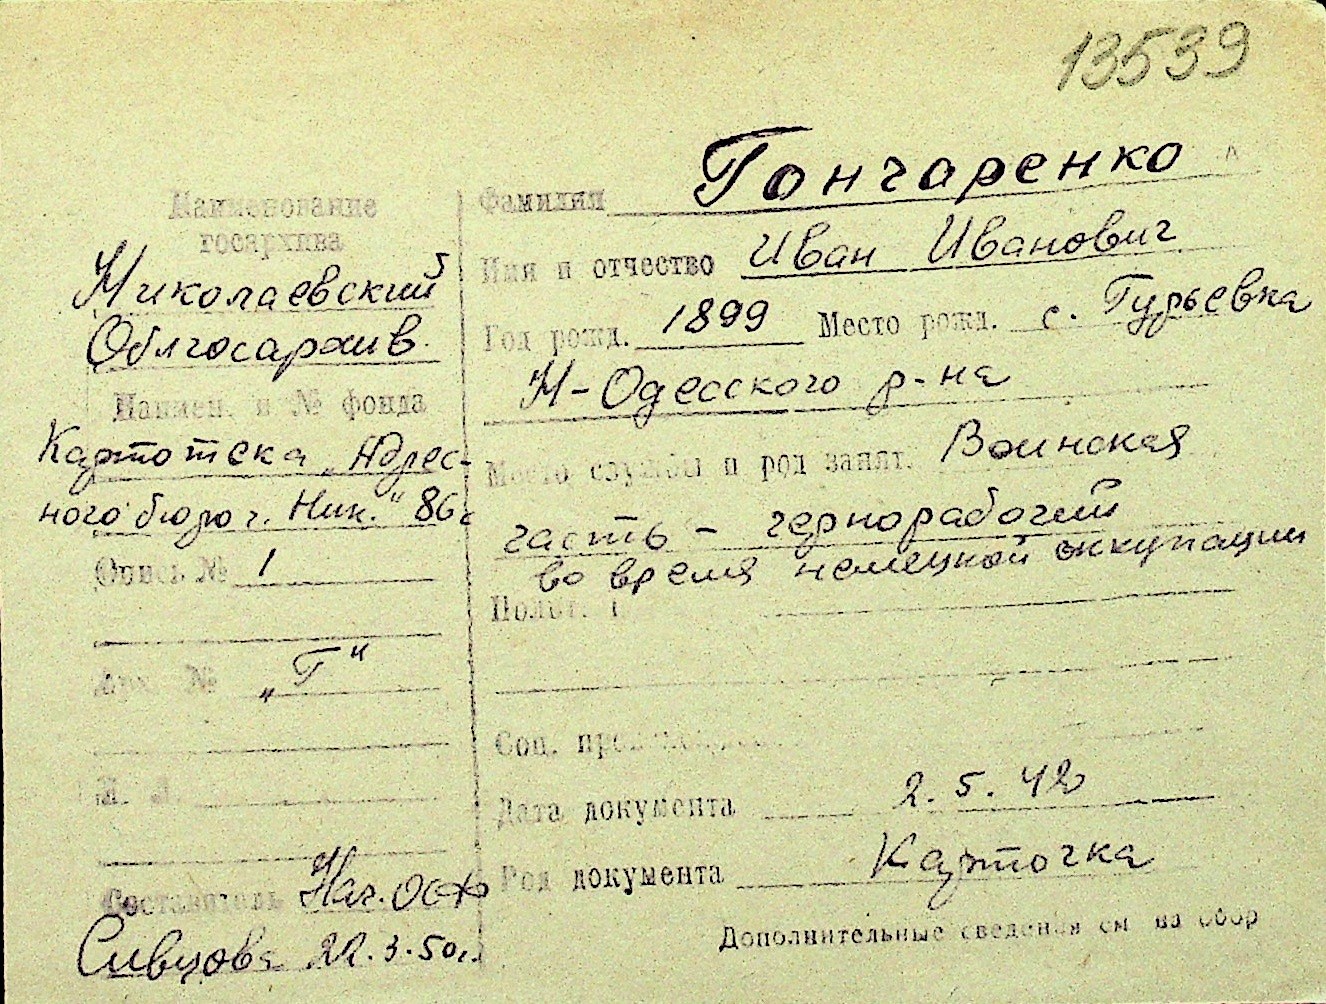 13539
Наименование
госархива
Николаевский
Облгосархив.
Наимен. и № фонда
Картотека „Адрес-
ного бюро г. Ник.“ 86с
Опись № 1
Арх. № „Г“
Л. Л.
Составитель Нач. ОСФ
Сивцова 22.3.50г.
Фамилия Гончаренко
Имя и отчество Иван Иванович
Год рожд. 1899 Место рожд. с. Гурьевка
Н-Одесского р-на
Место службы и род занят. Воинская
часть – чернорабочий
во время немецкой оккупации
Соц.
Дата документа 2.5.42
Род документа Карточка
Дополнительные сведения см на обор